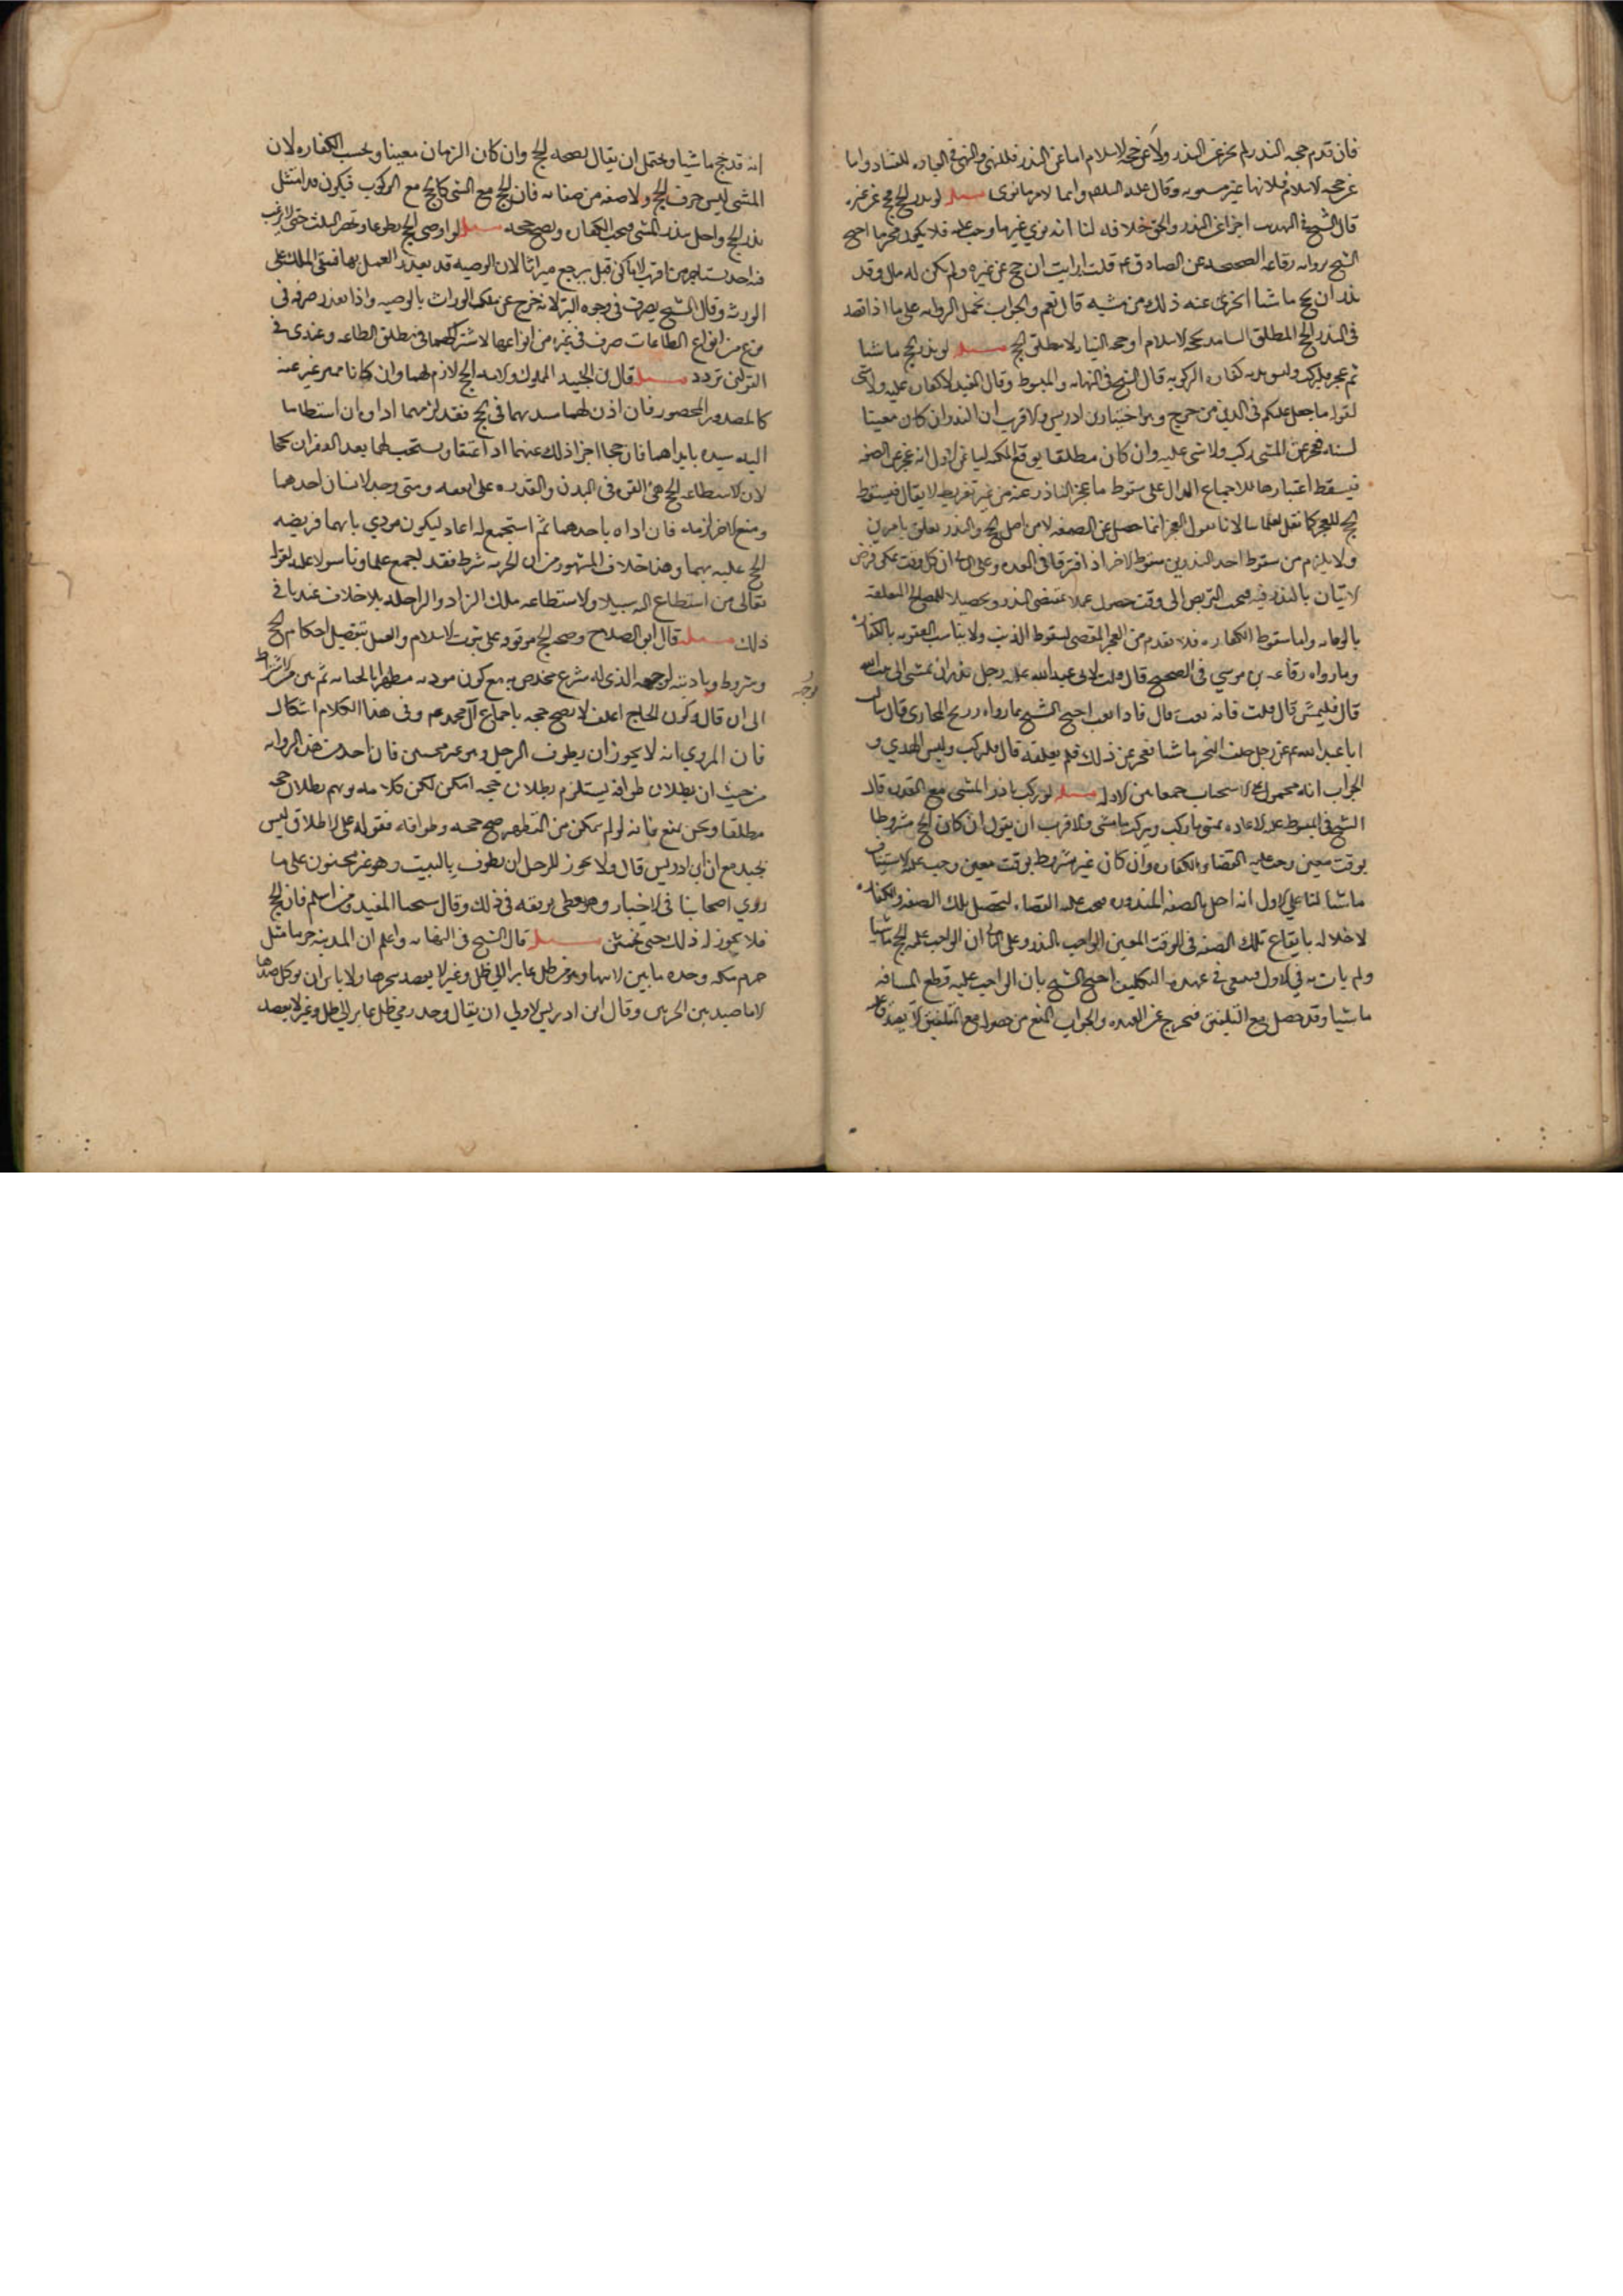 فان قدم حجة النذر لم يجز عن النذر ولا عن حجة الاسلام اما عن النذر فللنهي والنهي في العباده للفساد واما
عن حجة الاسلام فلانها غير منويه وقال عليه السلم وانما لامرء ما نوى مسئلة لو نذر الحج فحج عن غيره
قال الشيخ في التهذيب اجزا عن النذر والحق خلافه لنا انه نوى غير ما وجب عليه فلا يكون مجزيا احتج
الشيخ بروايه رفاعه الصحيحه عن الصادق ع قلت ارايت ان حج عن غيره ولم يكن له مال وقد
نذر ان يحج ماشيا ايجزى عنه ذلك من مشيه قال نعم والجواب يحمل الروايه على ما اذا قصد
في النذر الحج المطلق الشامل لحجة الاسلام او حجه النيابه لا مطلق الحج مسئلة لو نذر الحج ماشيا
ثم عجز فليركب وليسق بدنه كفاره الركوبه قال الشيخ في النهايه والمبسوط وقال المفيد لا كفاره عليه ولا شي
لقوله ما جعل عليكم في الدين من حرج وهو اختيار ابن ادريس والاقرب ان النذر ان كان معينا
لسنه فعجز عن المشي ركب ولا شي عليه وان كان مطلقا توقع المكنه لنا على الاول انه عجز عن الصفه
فيسقط اعتبارها للاجماع الدال على سقوط ما عجز الناذر عنه من غير تفريط لا يقال فيسقط
الحج للعجز كما نقل علماؤنا لانا نقول العجز انما حصل عن الصفه لا من اصل الحج والنذر تعلق بامرين
ولا يلزم من سقوط احد النذرين سقوط الاخر اذ افترقا في القدره وعلى الثاني ان كل وقت يمكن فرض
الاتيان بالنذر فيه فيجب التربص الى وقت حصول عملا بمقتضى النذر وتحصيلا للمصالح المتعلقه
بالوفاء واما سقوط الكفاره فلما تقدم من العجز المقتضي لسقوط الذنب ولا يناسب العقوبه بالكفاره
وما رواه رفاعه بن موسى في الصحيح قال قلت لابي عبد الله عليه رجل نذر ان يمشي الى بيت الله
قال فليمش قال قلت فانه تعب قال فاذا تعب احتج الشيخ بما رواه ذريح المحاربي قال سالت
ابا عبد الله ع عن رجل حلف ليحجن ماشيا فعجز عن ذلك فلم يطقه قال فليركب وليسق الهدي و
الجواب انه محمول على الاستحباب جمعا بين الادله مسئلة لو ركب ناذر المشي مع القدره قال
الشيخ في المبسوط عليه الاعاده يمشي ما ركب ويركب ما مشى والاقرب ان يقول ان كان الحج مشروطا
بوقت معين وجب عليه القضا والكفاره وان كان غير مشروط بوقت معين وجب عليه الاستيناف
ماشيا لنا على الاول انه اخل بالصفه المنذوره فيجب عليه القضاء لتحصيل تلك الصفه والكفاره
لاخلاله بايقاع تلك الصفه في الوقت المعين الواجب بالنذر وعلى الثاني ان الواجب عليه الحج ماشيا
ولم يات به في الاول فيبقى في عهده التكليف احتج الشيخ بان الواجب عليه قطع المسافه
ماشيا وقد حصل مع التلفيق فيخرج عن العهده والجواب المنع من حصوله مع التلفيق لا يصدق عليه
انه قد حج ماشيا ويحتمل ان يقال بصحه الحج وان كان الزمان معينا ويجب الكفاره لان
المشي ليس جزء الحج ولا صفه من صفاته فان الحج مع المشي كالحج مع الركوب فيكون قد امتثل
نذر الحج واخل بنذر المشي فيجب الكفاره ويصح حجه مسئلة لو اوصى بالحج تطوعا وقصر الثلث حتى لا يرغب
فيه احد يستاجر من اقرب الاماكن قيل يرجع ميراثا لان الوصيه قد تعذر العمل بها فيبقى الملك على
الورثه وقال الشيخ يصرف في وجوه البر لانه خرج عن ملك الوارث بالوصيه واذا تعذر صرفه في
نوع من انواع الطاعات صرف في غيره من انواعها لاشتراكهما في مطلق الطاعه وعندي في
القولين تردد مسئلة قال ابن الجنيد المملوك والامه الحج لازم لهما وان كانا ممنوعين عنه
كالمصدود والمحصور فان اذن لهما سيدهما في الحج فقد لزمهما اداوه ان استطاعا
اليه سبيلا بابدانهما فان حجا اجزا ذلك عنهما اذا اعتقا ويستحب لهما بعد العتق ان يحجا
لان الاستطاعه للحج هي القوه في البدن والقدره على النفقه ومتى وجد الانسان احدهما
ومنع الاخر لزمه فان اداه باحدهما ثم استجمع له اعاد ليكون مودي بانهما فريضه
الحج عليه بهما وهذا خلاف المشهور من ان الحريه شرط فقد اجمع علماونا سواه عليه لقوله
تعالى من استطاع اليه سبيلا والاستطاعه ملك الزاد والراحله بلا خلاف عندنا في
ذلك مسئلة قال ابو الصلاح وصحه الحج موقوفه على ثبوت الاسلام والعمل بتفصيل احكام الحج
وشروطه وتاديته لوجهه الذي له شرع مخلصا به مع كون موديه مطهرا بالختانه ثم بين مراد اشتراط
لوجهه
الى ان قال وكون الحاج اغلف لا يصح حجه باجماع آل محمد ع وفي هذا الكلام اشكال
فان المروي انه لا يجوز ان يطوف الرجل وهو غير مختتن فان اخذت هذه الروايه
من حيث ان بطلان طوافه يستلزم بطلان حجه امكن لكن كلامه يوهم بطلان حجه
مطلقا ونحن نمنع فانه لو لم يتمكن من التطهر صح حجه وطوافه فقوله على الاطلاق ليس
بجيد مع ان ابن ادريس قال ولا يجوز للرجل ان يطوف بالبيت وهو غير مختون على ما
روى اصحابنا في الاخبار وهو يعطي توقفه في ذلك وقال شيخنا المفيد ومن اسلم فان الحج
فلا يجوز له ذلك حتى يختتن مسئلة قال الشيخ في النهايه واعلم ان المدينه حرما مثل
حرم مكه وحده ما بين لابتيها وهو من ظل عاير الى ظل وعير لا يعضد شجرها ولا باس ان يوكل صيدها
الا ما صيد بين الحرتين وقال ابن ادريس الاولى ان يقال وحده من ظل عاير الى ظل وعير لا يعضد